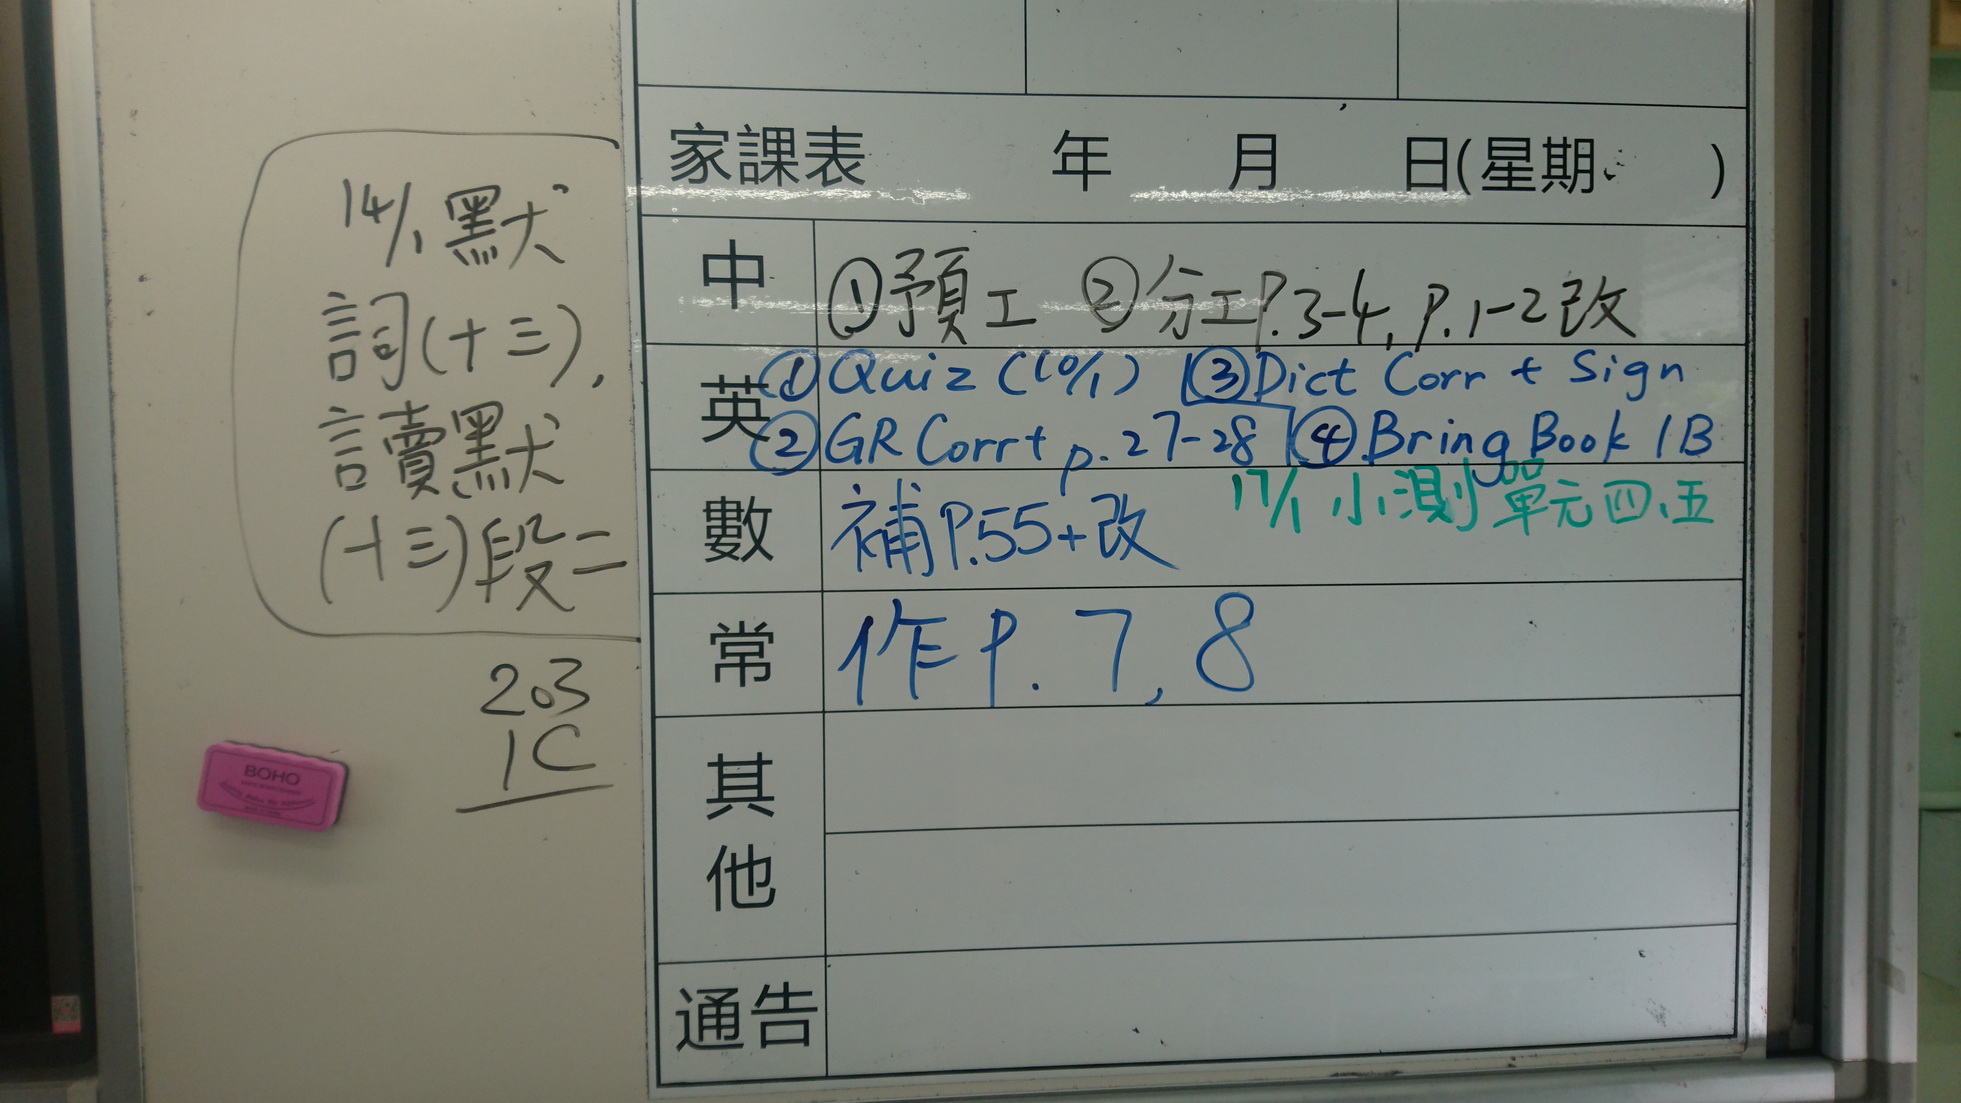 14/1 默
詞(十三),
讀默
(十三)段二
203
1C
BOHO
家課表 年 月 日(星期 )
中 ①預工 ②分工P.3-4, P.1-2改
英 ①Quiz (10/1) ③Dict Corr + Sign
②GR Corr+ p.27-28 ④Bring Book 1B
數 補P.55+改 17/1 小測 單元四、五
常 作P.7, 8
其他
通告